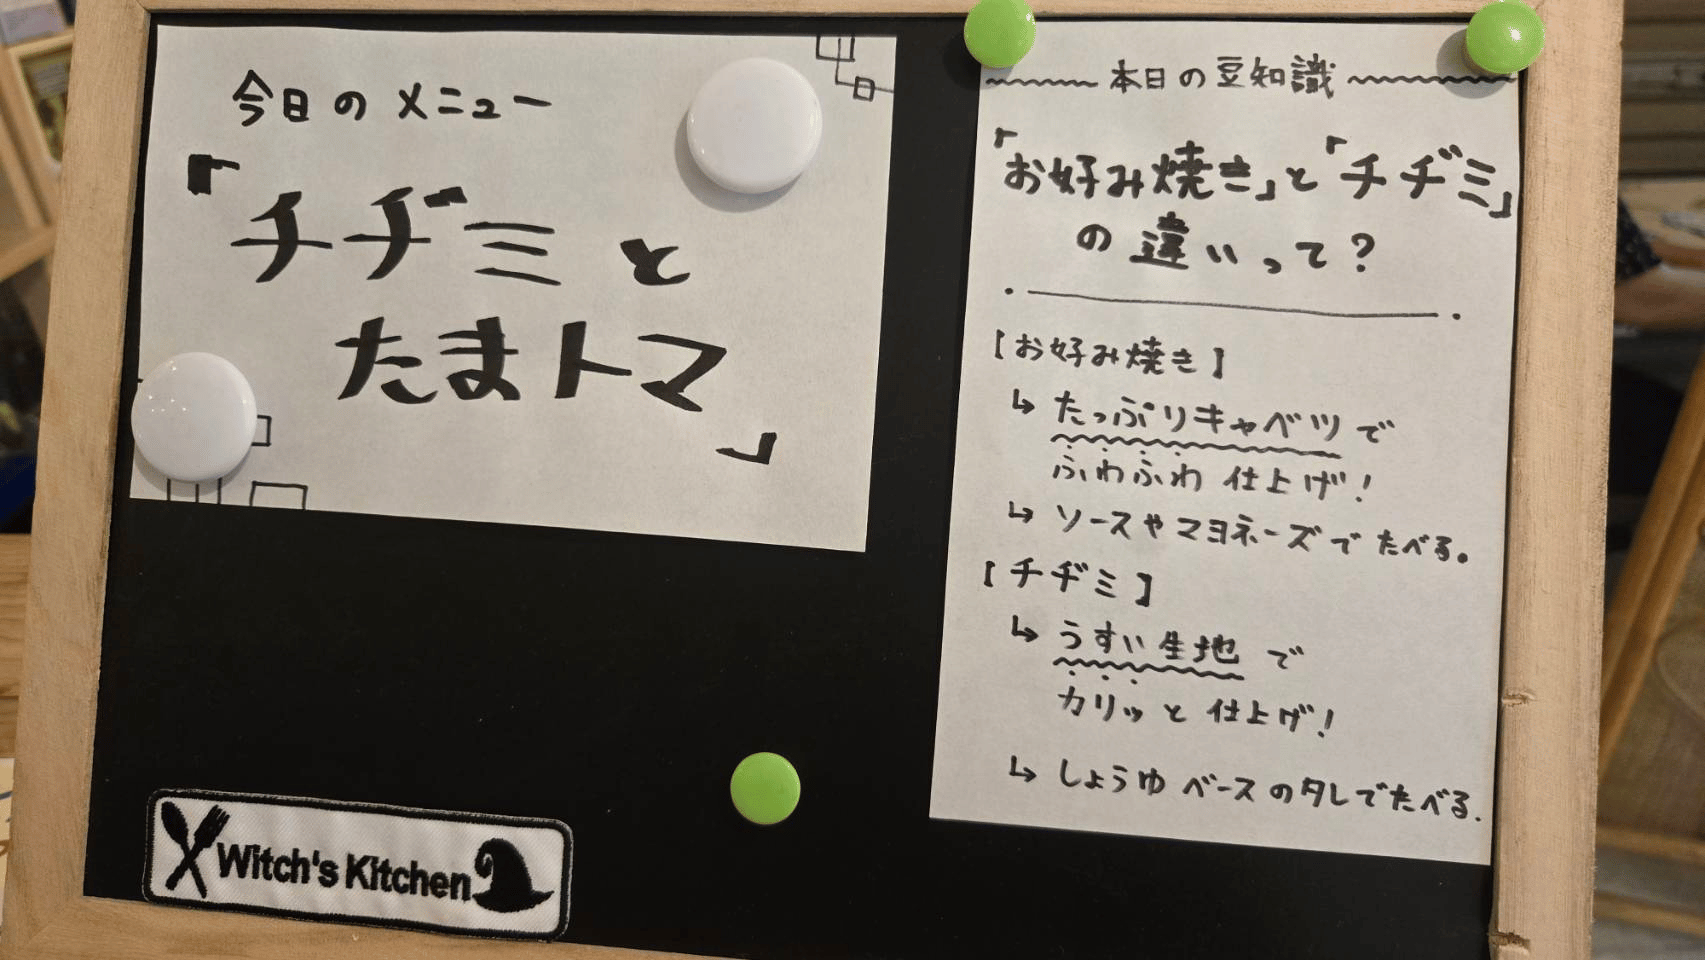 今日のメニュー
「チヂミと
たまトマ
」
本日の豆知識
「お好み焼き」と「チヂミ」
の違いって?
【お好み焼き】
↳ たっぷりキャベツで
ふわふわ仕上げ!
↳ ソースやマヨネーズでたべる。
【チヂミ】
↳ うすい生地で
カリッと仕上げ!
↳ しょうゆベースのタレでたべる.
Witch's Kitchen